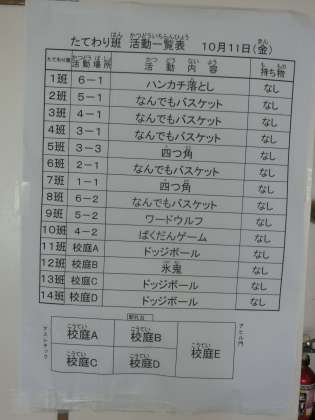 たてわり班 活動一覧表 10月11日(金)
たてわり班 活動場所 活動内容 持ち物
1班 6－1 ハンカチ落とし なし
2班 5－1 なんでもバスケット なし
3班 4－1 なんでもバスケット なし
4班 3－1 なんでもバスケット なし
5班 3－3 四つ角 なし
6班 2－1 なんでもバスケット なし
7班 1－1 四つ角 なし
8班 6－2 なんでもバスケット なし
9班 5－2 ワードウルフ なし
10班 4－2 ばくだんゲーム なし
11班 校庭A ドッジボール なし
12班 校庭B 氷鬼 なし
13班 校庭C ドッジボール なし
14班 校庭D ドッジボール なし
朝礼台
校庭A 校庭B
校庭E
校庭C 校庭D